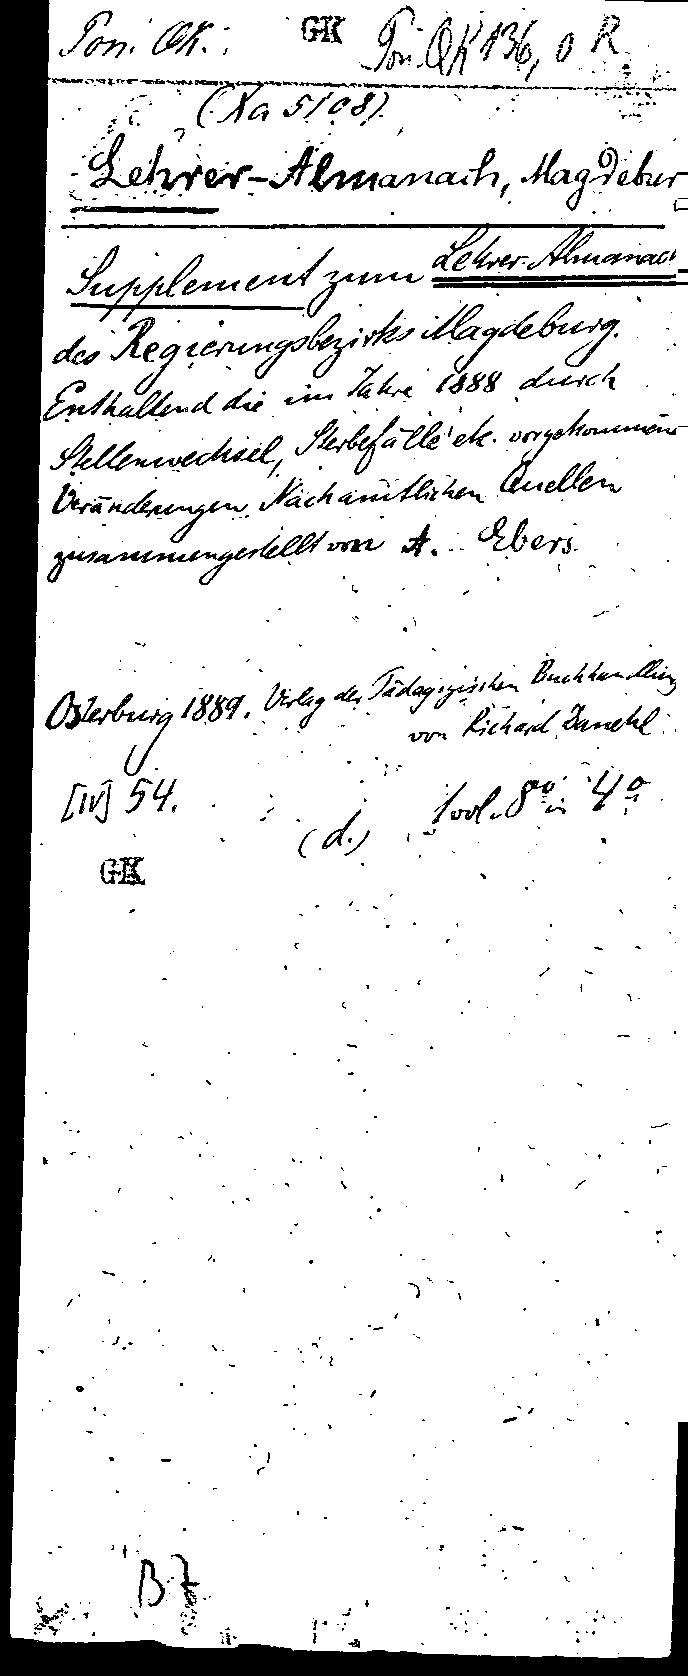 Pon. QK. GK Pon. QK 136, o R
(Xa 5108)
Lehrer-Almanach, Magdebur
Supplement zum Lehrer-Almanach
des Regierungsbezirks Magdeburg.
Enthaltend die im Jahre 1888 durch
Stellenwechsel, Sterbefälle etc. vorgekommene
Veränderungen. Nach amtlichen Quellen
zusammengestellt von A. Ebers.
Osterburg 1889. Verlag der Pädagogischen Buchhandlung
von Richard Danehl
[IV] 54.
(d.) 1 vol. 8° in 4°
GK